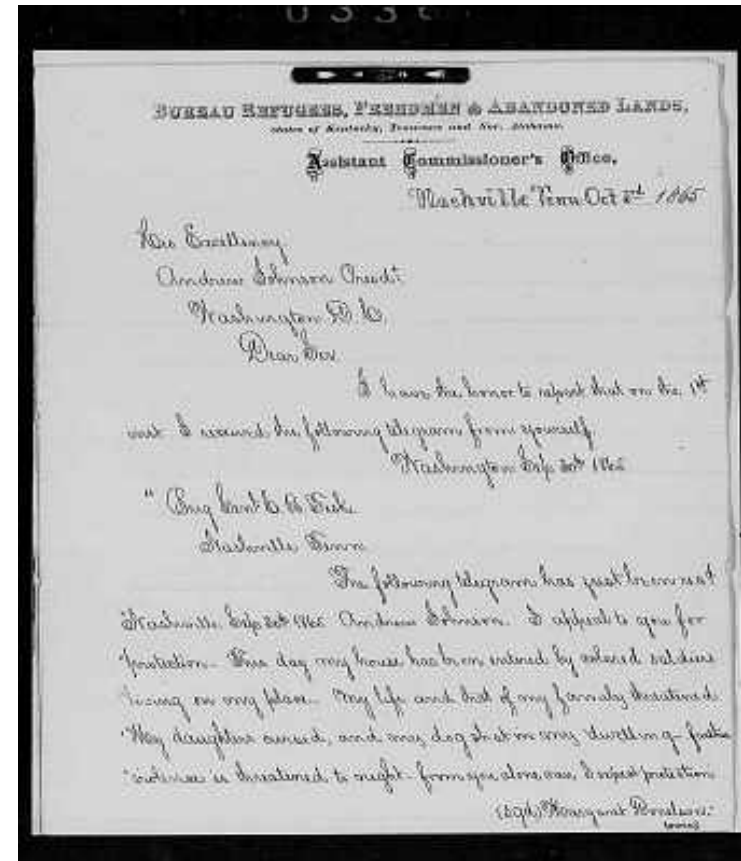 0336
BUREAU REFUGEES, FREEDMEN & ABANDONED LANDS,
States of Kentucky, Tennessee and Nor. Alabama,
Assistant Commissioner's Office,
Nashville Tenn Oct 1865
His Excellency
Andrew Johnson Presdt
Washington D. C.
Dear Sir
I have the honor to report that on the 1st
inst I received the following telegram from yourself
Washington Sep 30th 1865
" Brig Genl C. B Fisk
Nashville Tenn
The following telegram has just been recd
Nashville Sep 30th 1865 Andrew Johnson. I appeal to you for
protection. This day my house has been entered by colored soldiers
living on my place. My life and that of my family threatened
My daughters cursed, and my dog shot in my dwelling - further
violence is threatened to night. from you alone can I expect protection
(sgd) Margaret Donelson.